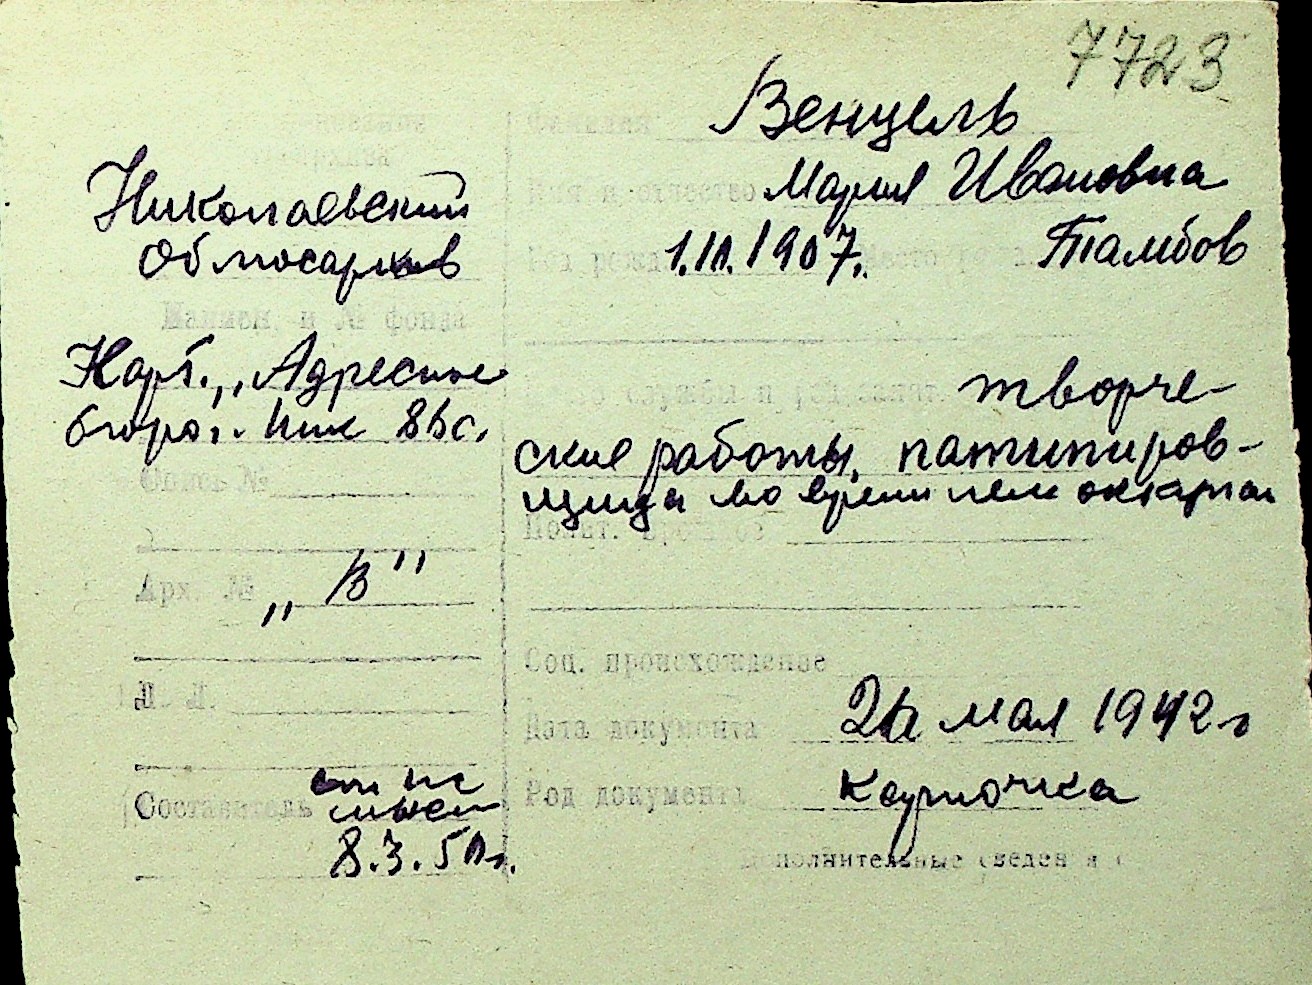 7723
Наименование
архива
Николаевский
Облгосархив
Наимен. и № фонда
Карт. „Адресное
бюро".
Опись №
Арх. № „В"
Л. Л.
Составитель
8.3.50г.
Фамилия Венцель
Имя и отчество Мария Ивановна
Год рожд. 1907. Место рожд. Тамбов
Место службы и род занят. творче-
ские работы,
во время
Полит. прошлое
Соц. происхождение
Дата документа мая 1942 г
Род документа карточка
Дополнительные сведения